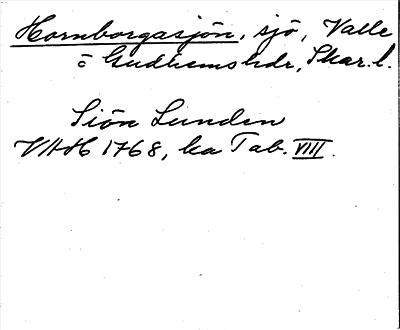 Hornborgasjön, sjö, Valle
o Gudhemshdr, Skar. l.
Siön Lunden
VAH 1768, ka Tab. VIII.